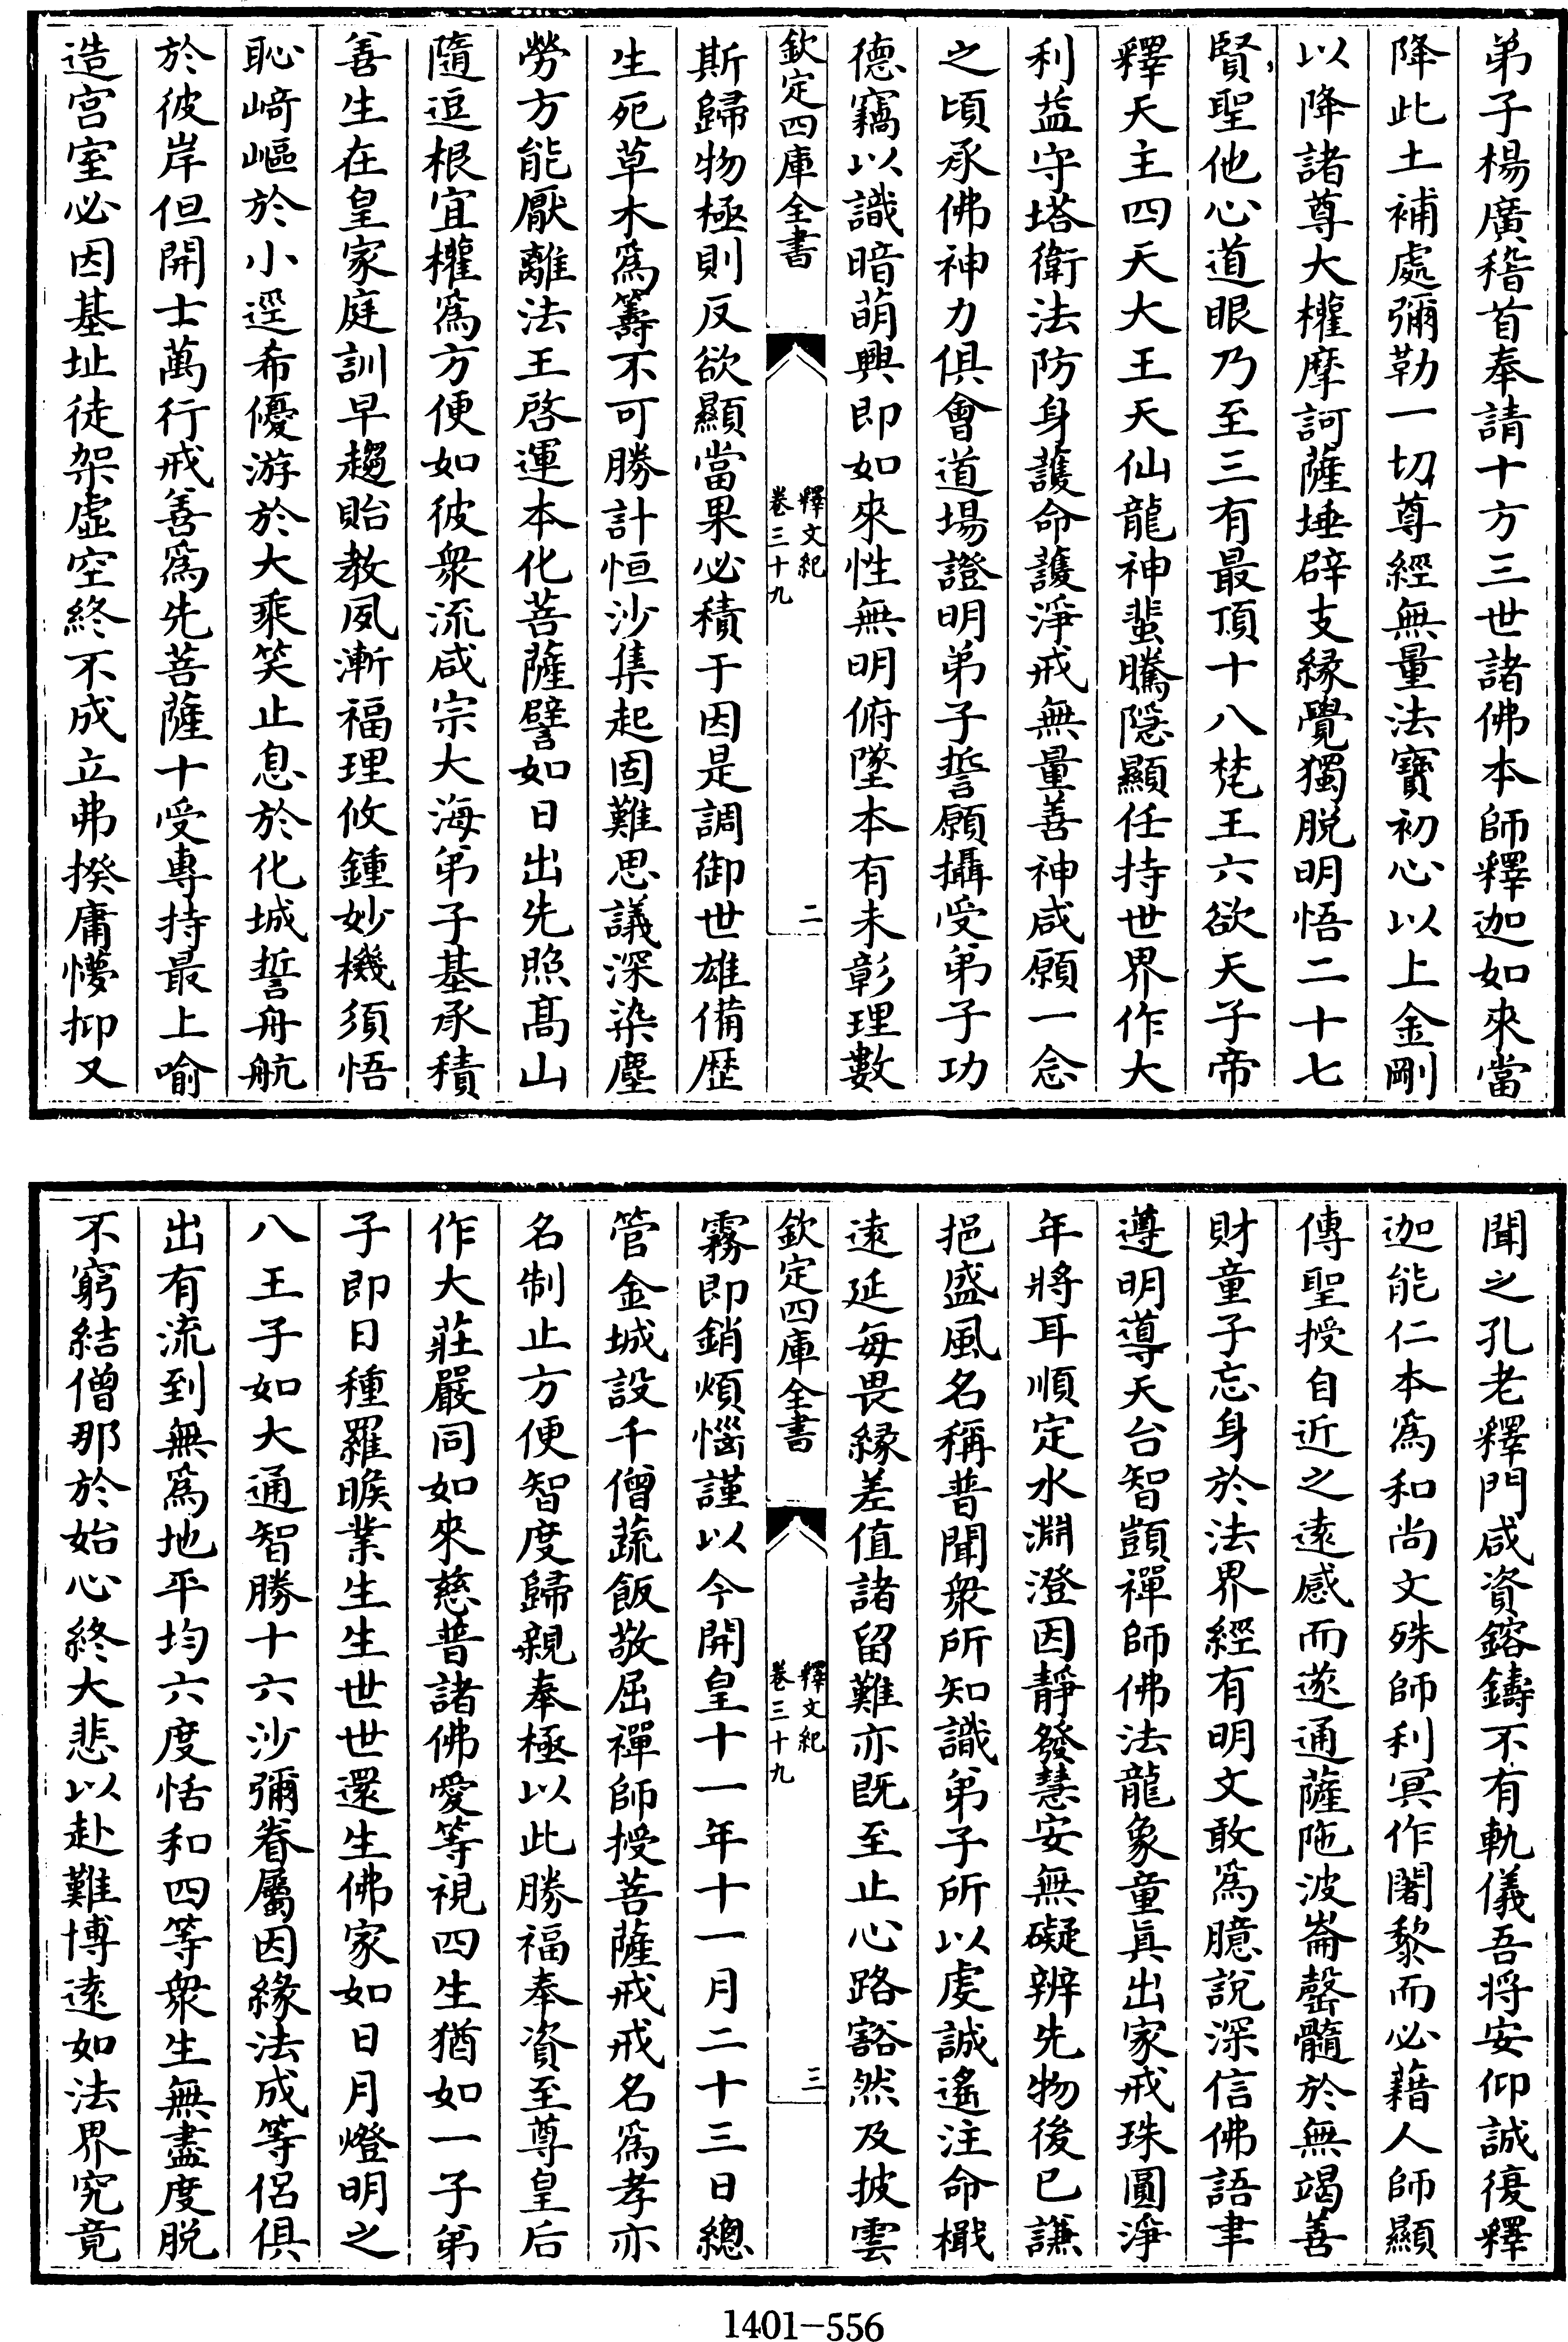 弟子楊廣稽首奉請十方三世諸佛本師釋迦如來當
降此土補處彌勒一切尊經無量法寶初心以上金剛
以降諸尊大權摩訶薩埵辟支緣覺獨脱明悟二十七
賢聖他心道眼乃至三有最頂十八梵王六欲天子帝
釋天主四天大王天仙龍神蜚騰隱顯任持世界作大
利益守塔衛法防身護命護淨戒無量善神咸願一念
之頃承佛神力俱會道場證明弟子誓願攝受弟子功
德竊以識暗萌興即如來性無明俯墜本有未彰理數
欽定四庫全書
釋文紀
卷三十九
二
斯歸物極則反欲顯當果必積于因是調御世雄備歴
生死草木爲籌不可勝計恒沙集起固難思議深染塵
勞方能厭離法王啓運本化菩薩譬如日出先照髙山
隨逗根宜權爲方便如彼衆流咸宗大海弟子基承積
善生在皇家庭訓早趨貽教夙漸福理攸鍾妙機須悟
恥崎嶇於小逕希優游於大乘笑止息於化城誓舟航
於彼岸但開士萬行戒善爲先菩薩十受專持最上喻
造宫室必因基址徒架虛空終不成立弗揆庸懜抑又
聞之孔老釋門咸資鎔鑄不有軌儀吾將安仰誠復釋
迦能仁本爲和尚文殊師利冥作闍黎而必藉人師顯
傳聖授自近之遠感而遂通薩陁波崙罄髓於無竭善
財童子忘身於法界經有明文敢爲臆說深信佛語聿
遵明導天台智顗禪師佛法龍象童真出家戒珠圓淨
年將耳順定水淵澄因靜發慧安無礙辨先物後已謙
挹盛風名稱普聞衆所知識弟子所以虔誠遙注命檝
遠延每畏緣差值諸留難亦旣至止心路豁然及披雲
欽定四庫全書
釋文紀
卷三十九
三
霧即銷煩惱謹以今開皇十一年十一月二十三日總
管金城設千僧蔬飯敬屈禪師授菩薩戒戒名爲孝亦
名制止方便智度歸親奉極以此勝福奉資至尊皇后
作大莊嚴同如來慈普諸佛愛等視四生猶如一子弟
子即日種羅睺業生生世世還生佛家如日月燈明之
八王子如大通智勝十六沙彌眷屬因緣法成等侶俱
出有流到無爲地平均六度恬和四等衆生無盡度脱
不窮結僧那於始心終大悲以赴難博遠如法界究竟
1401-556